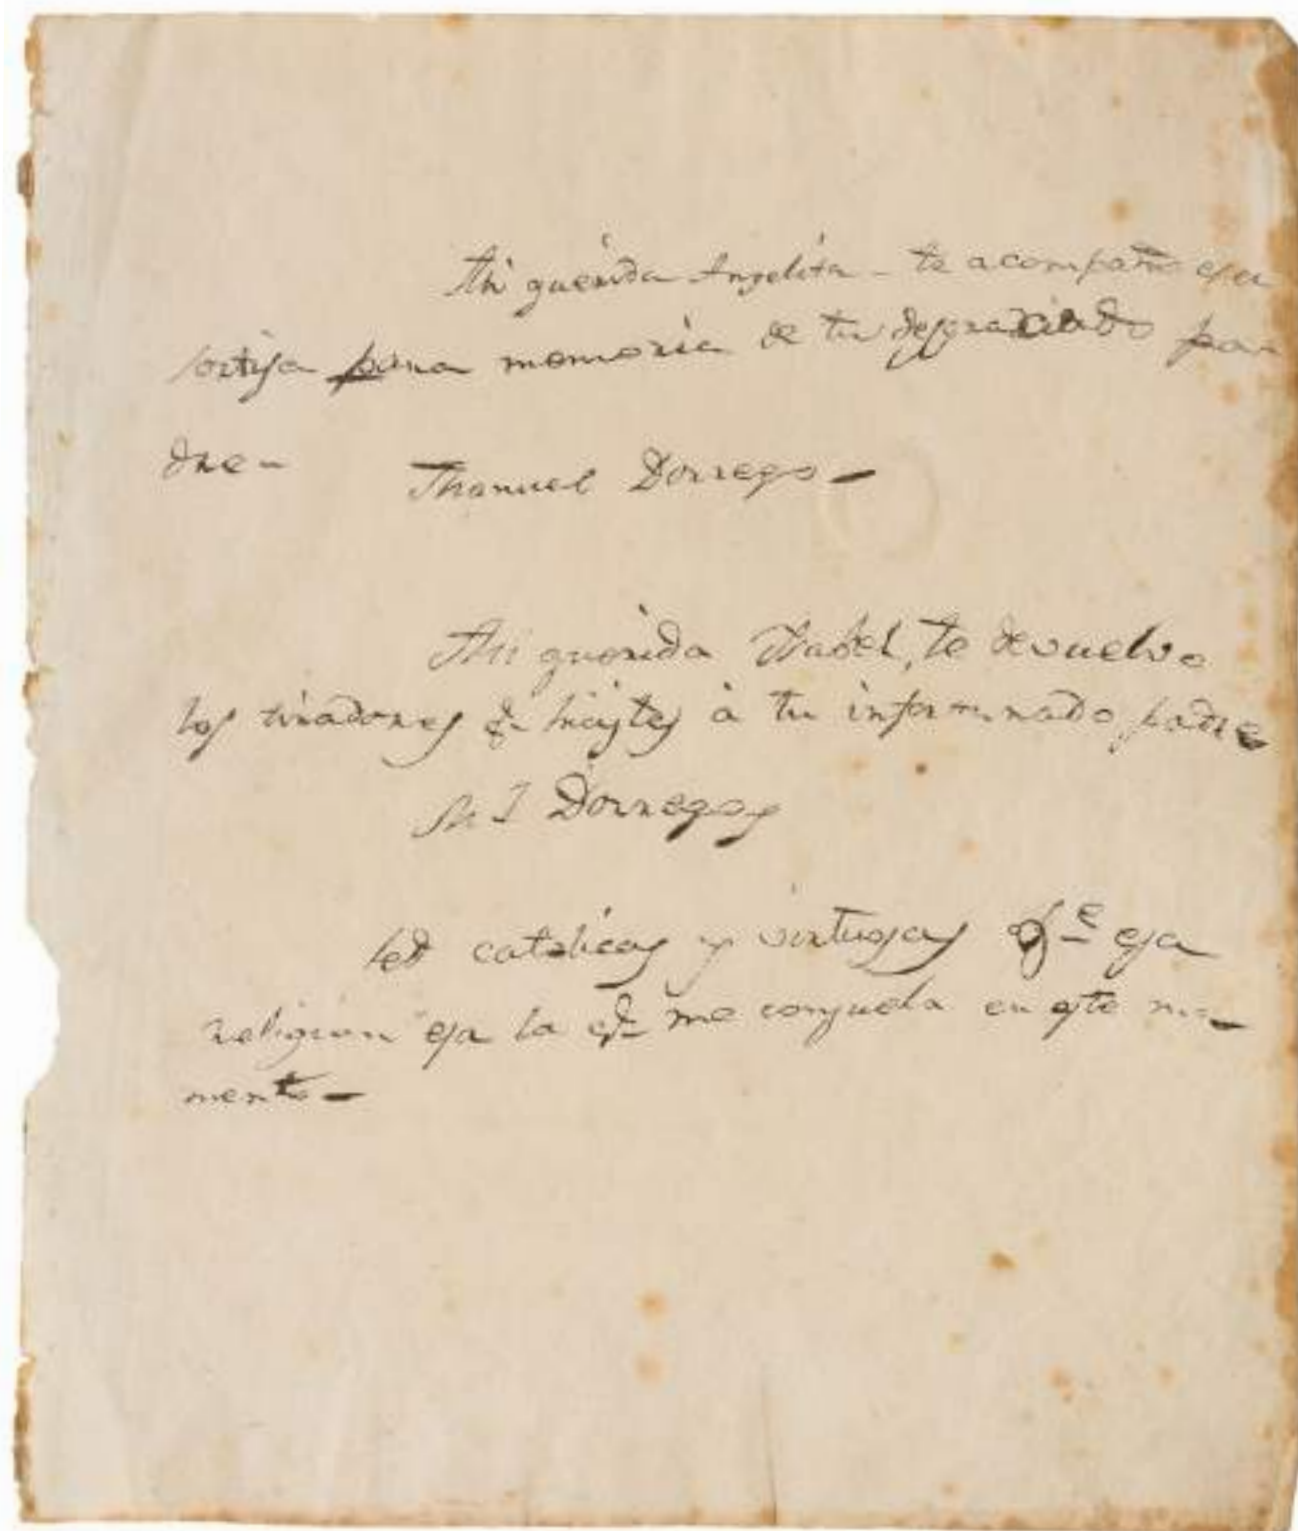 Mi querida Angelita - te acompaño esa
sortija para memoria de tu desgraciado pa-
dre - Manuel Dorrego -
Mi querida Isabel, te devuelvo
los tiradores q.e hicistes à tu infortunado padre
M.l Dorrego
Sed catolicas y virtuosas q.e esa
religion esa la q.e me consuela en este mo-
mento -